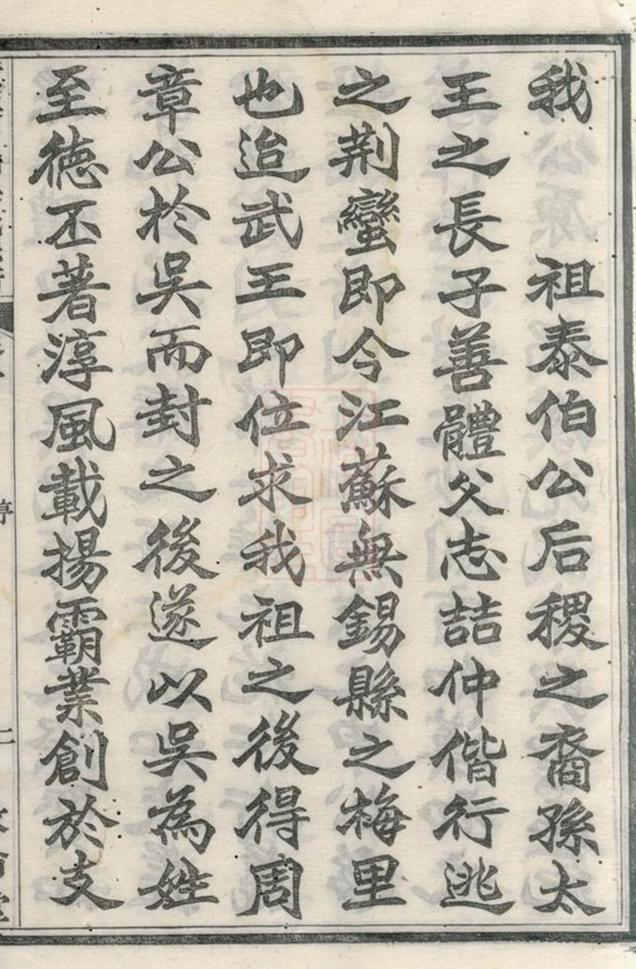 我　祖泰伯公后稷之裔孫太
王之長子善體父志喆仲偕行逃
之荆蠻即今江蘇無錫縣之梅里
也迨武王即位求我祖之後得周
章公於吳而封之後遂以吳為姓
至徳丕著淳風載揚霸業創於支